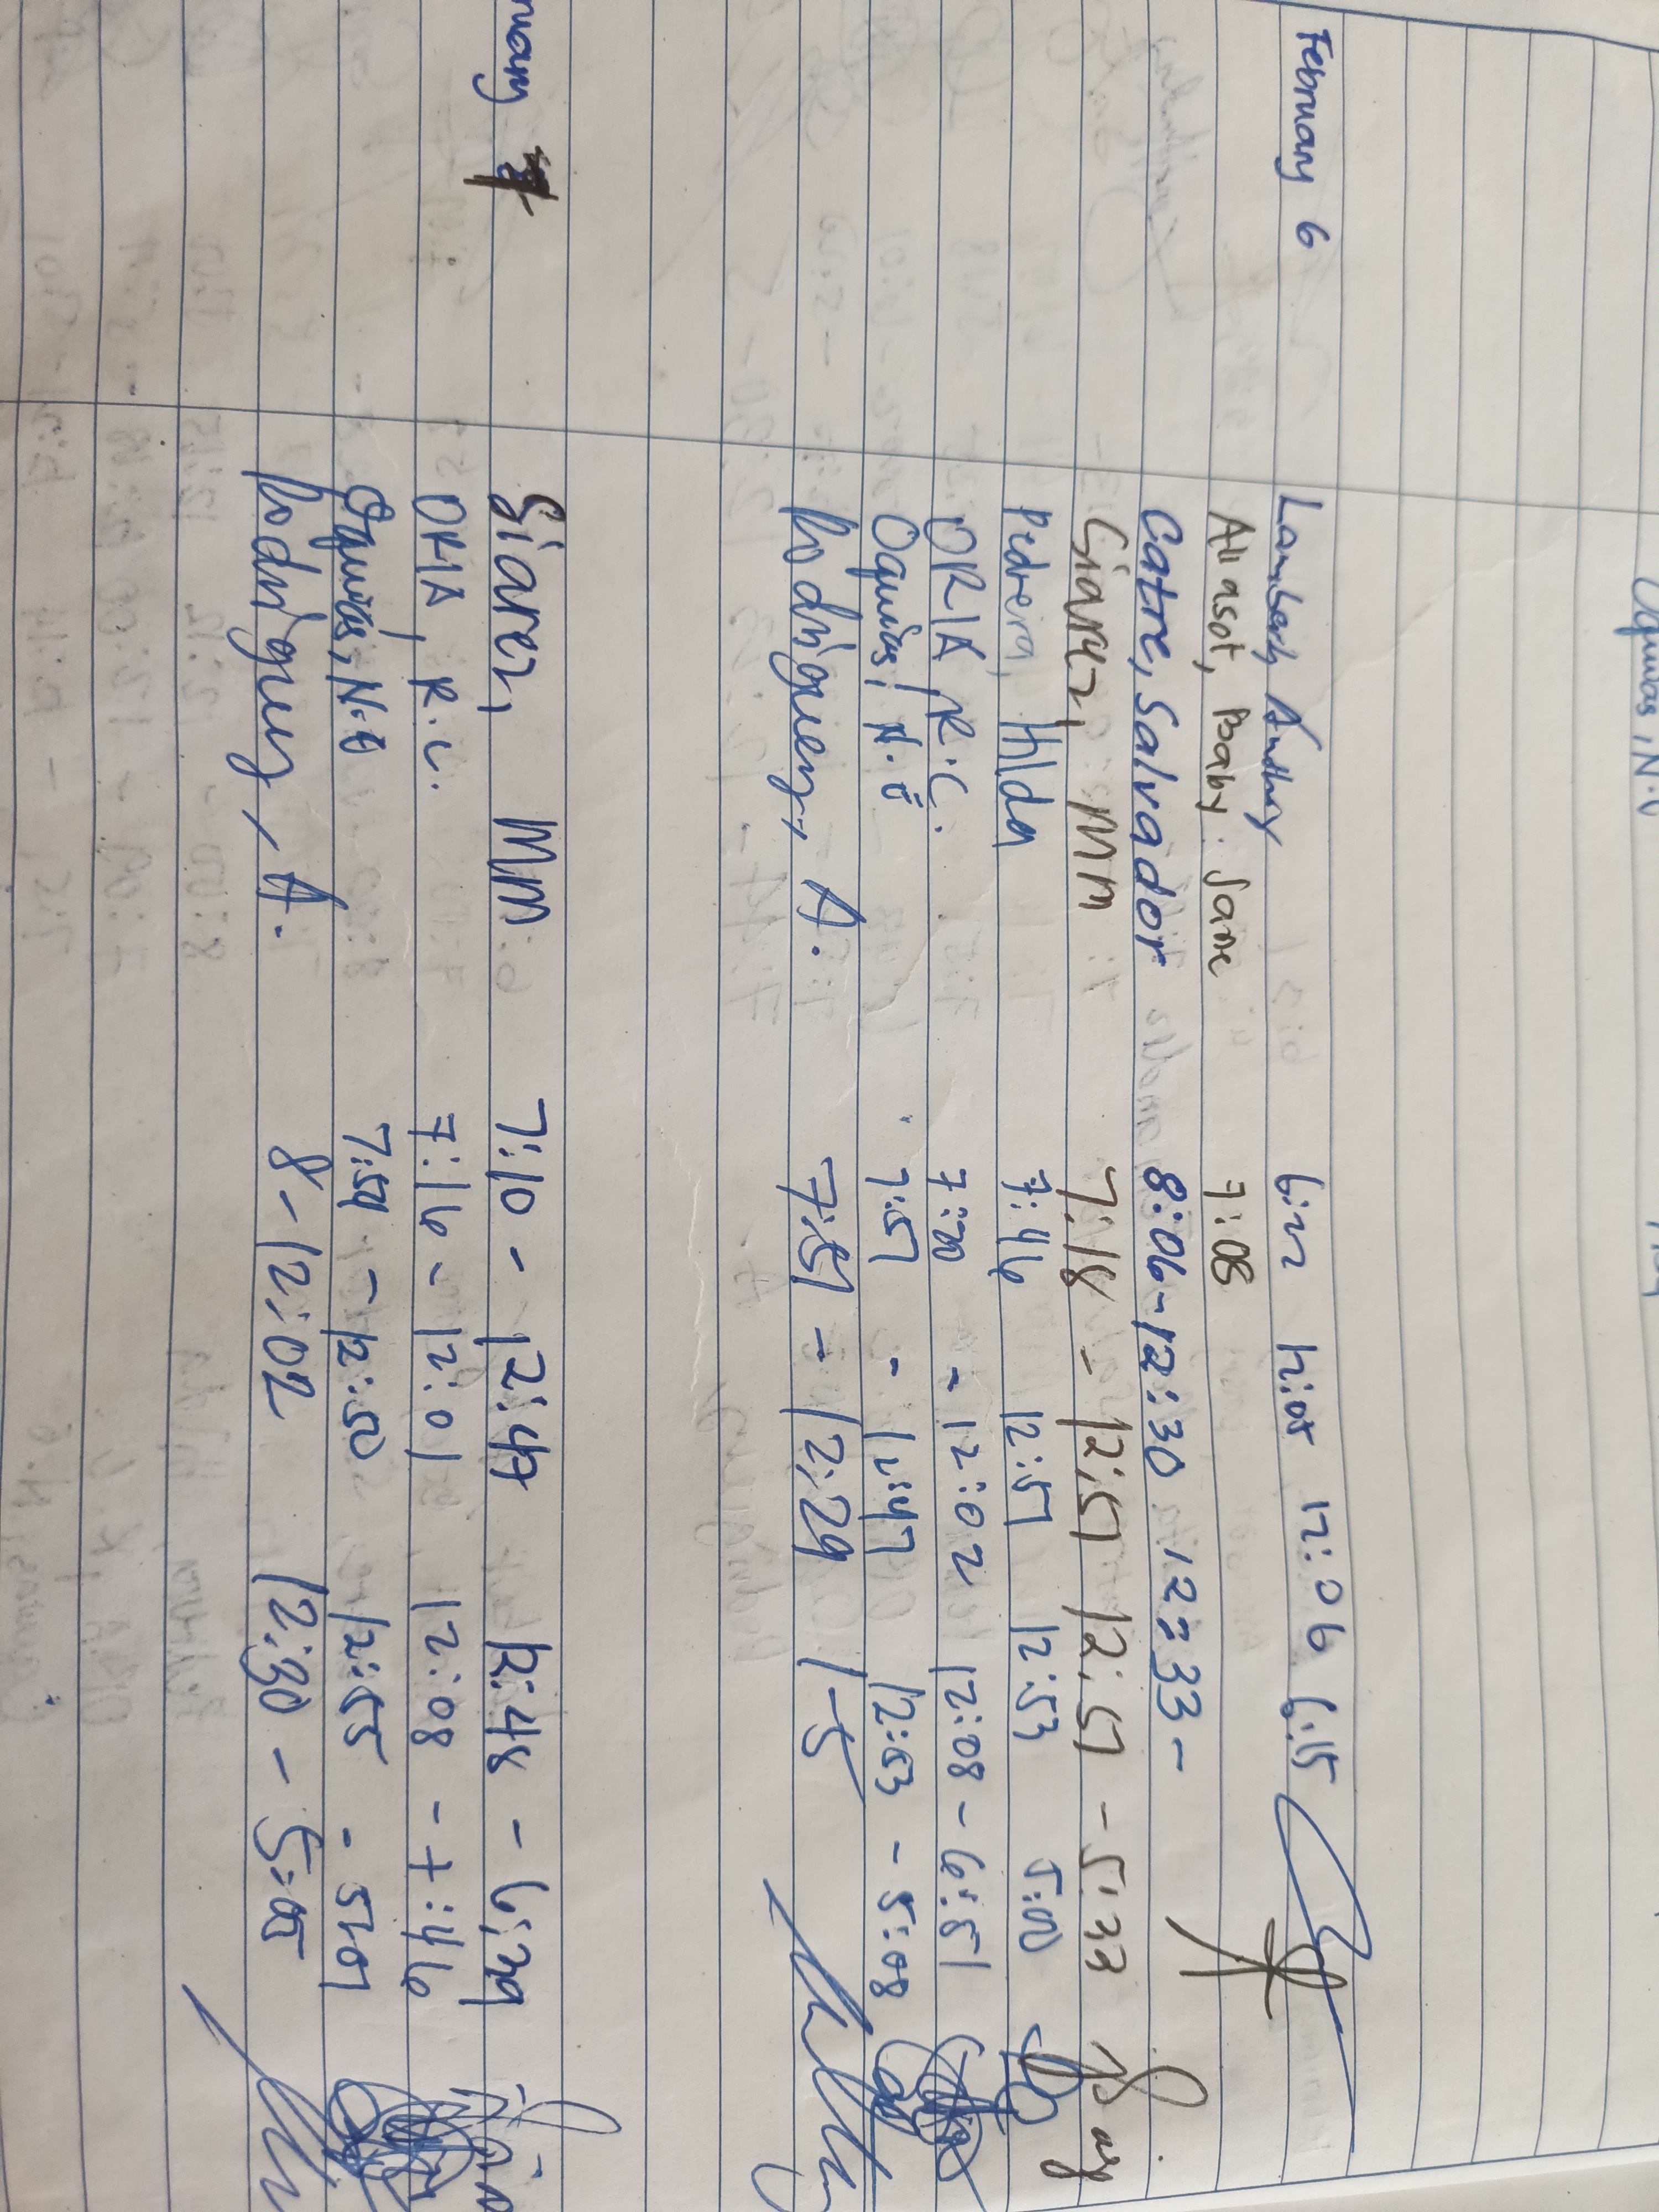 February 6 Lambert, Anthony 6:22 12:05 12:06 6:15
Allasot, Baby Jane 7:08
Catre, Salvador 8:06-12:30 12:33 -
Siarez, MM 7:18 - 12:51 12:51 - 5:33
Pedrera, Hilda 7:46 12:51 12:53 5:00
ORIA, R.C. 7:20 - 12:02 12:08 - 6:51
Oquiñas, N. 7:51 - 12:47 12:53 - 5:08
Rodriguez, A. 7:51 - 12:29 1-5
ruary 7 Siarez, MM 7:10 - 12:47 12:48 - 6:29
ORIA, R.C. 7:16 - 12:01 12:08 - 7:46
Oquiñas, N. 7:59 - 12:50 12:55 - 5:01
Rodriguez, A. 8-12:02 12:30 - 5:05